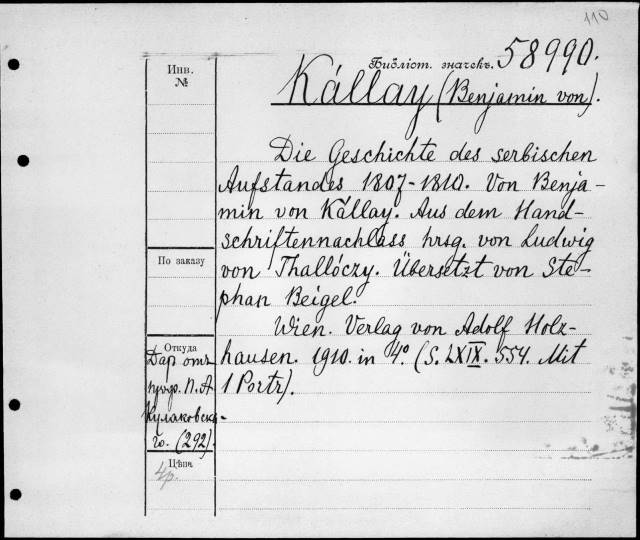 110
Библіот. значекъ. 58990.
Инв.
№
Kállay (Benjamin von).
Die Geschichte des serbischen
Aufstandes 1807-1810. Von Benja-
min von Kállay. Aus dem Hand-
schriftennachlass hrsg. von Ludwig
По заказу
von Thallóczy. Übersetzt von Ste-
phan Beigel.
Wien. Verlag von Adolf Holz-
hausen. 1910. in 4° (S. LXIX. 554. Mit
1 Portr).
Откуда
Дар отъ
проф. П. А
Кулаковска-
го. (292).
Цѣна
4р.